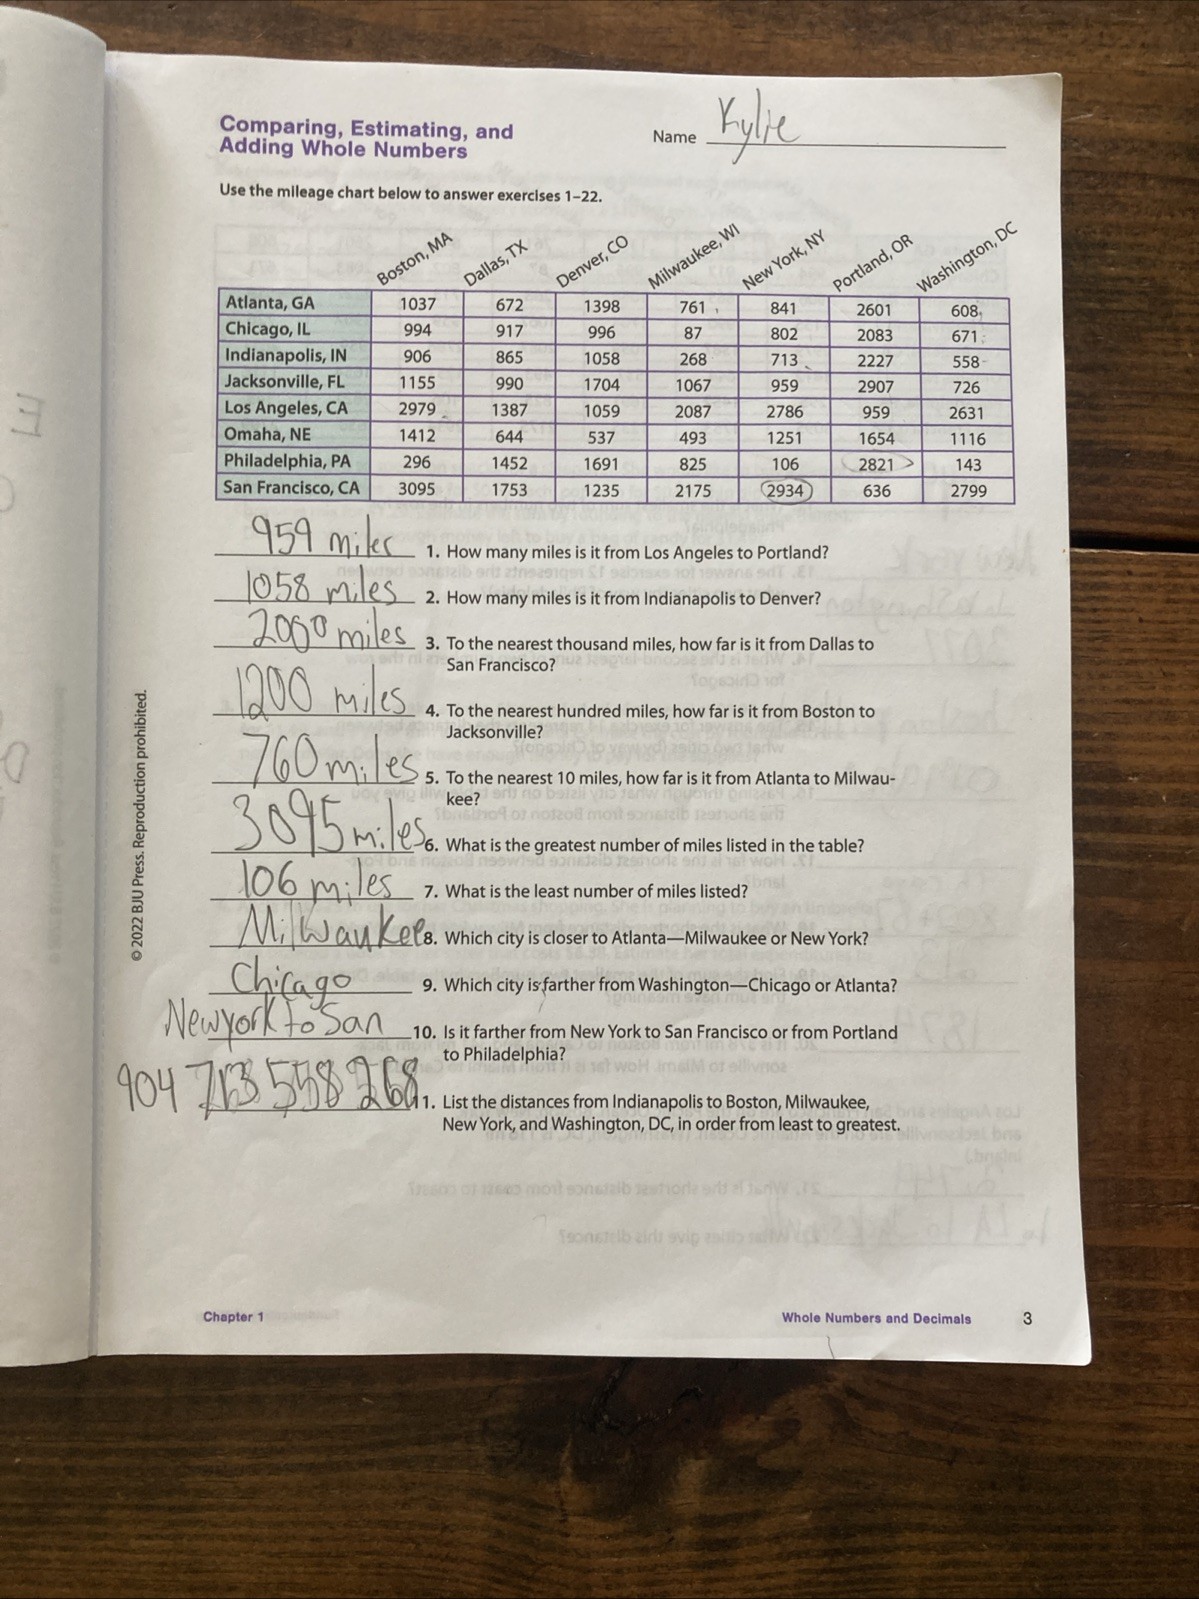 Comparing, Estimating, and
Adding Whole Numbers
Name Kylie
Use the mileage chart below to answer exercises 1–22.
Boston, MA Dallas, TX Denver, CO Milwaukee, WI New York, NY Portland, OR Washington, DC
Atlanta, GA 1037 672 1398 761 841 2601 608
Chicago, IL 994 917 996 87 802 2083 671
Indianapolis, IN 906 865 1058 268 713 2227 558
Jacksonville, FL 1155 990 1704 1067 959 2907 726
Los Angeles, CA 2979 1387 1059 2087 2786 959 2631
Omaha, NE 1412 644 537 493 1251 1654 1116
Philadelphia, PA 296 1452 1691 825 106 2821 143
San Francisco, CA 3095 1753 1235 2175 2934 636 2799
959 miles 1. How many miles is it from Los Angeles to Portland?
1058 miles 2. How many miles is it from Indianapolis to Denver?
2000 miles 3. To the nearest thousand miles, how far is it from Dallas to
San Francisco?
1200 miles 4. To the nearest hundred miles, how far is it from Boston to
Jacksonville?
760 miles 5. To the nearest 10 miles, how far is it from Atlanta to Milwau-
kee?
3095 miles 6. What is the greatest number of miles listed in the table?
106 miles 7. What is the least number of miles listed?
Milwaukee 8. Which city is closer to Atlanta—Milwaukee or New York?
Chicago 9. Which city is farther from Washington—Chicago or Atlanta?
New york to San 10. Is it farther from New York to San Francisco or from Portland
to Philadelphia?
904 713 558 268 11. List the distances from Indianapolis to Boston, Milwaukee,
New York, and Washington, DC, in order from least to greatest.
© 2022 BJU Press. Reproduction prohibited.
Chapter 1
Whole Numbers and Decimals 3